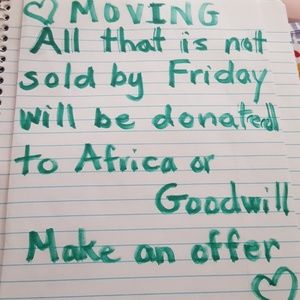 MOVING
All that is not
sold by Friday
will be donated
to Africa or
Goodwill
Make an offer